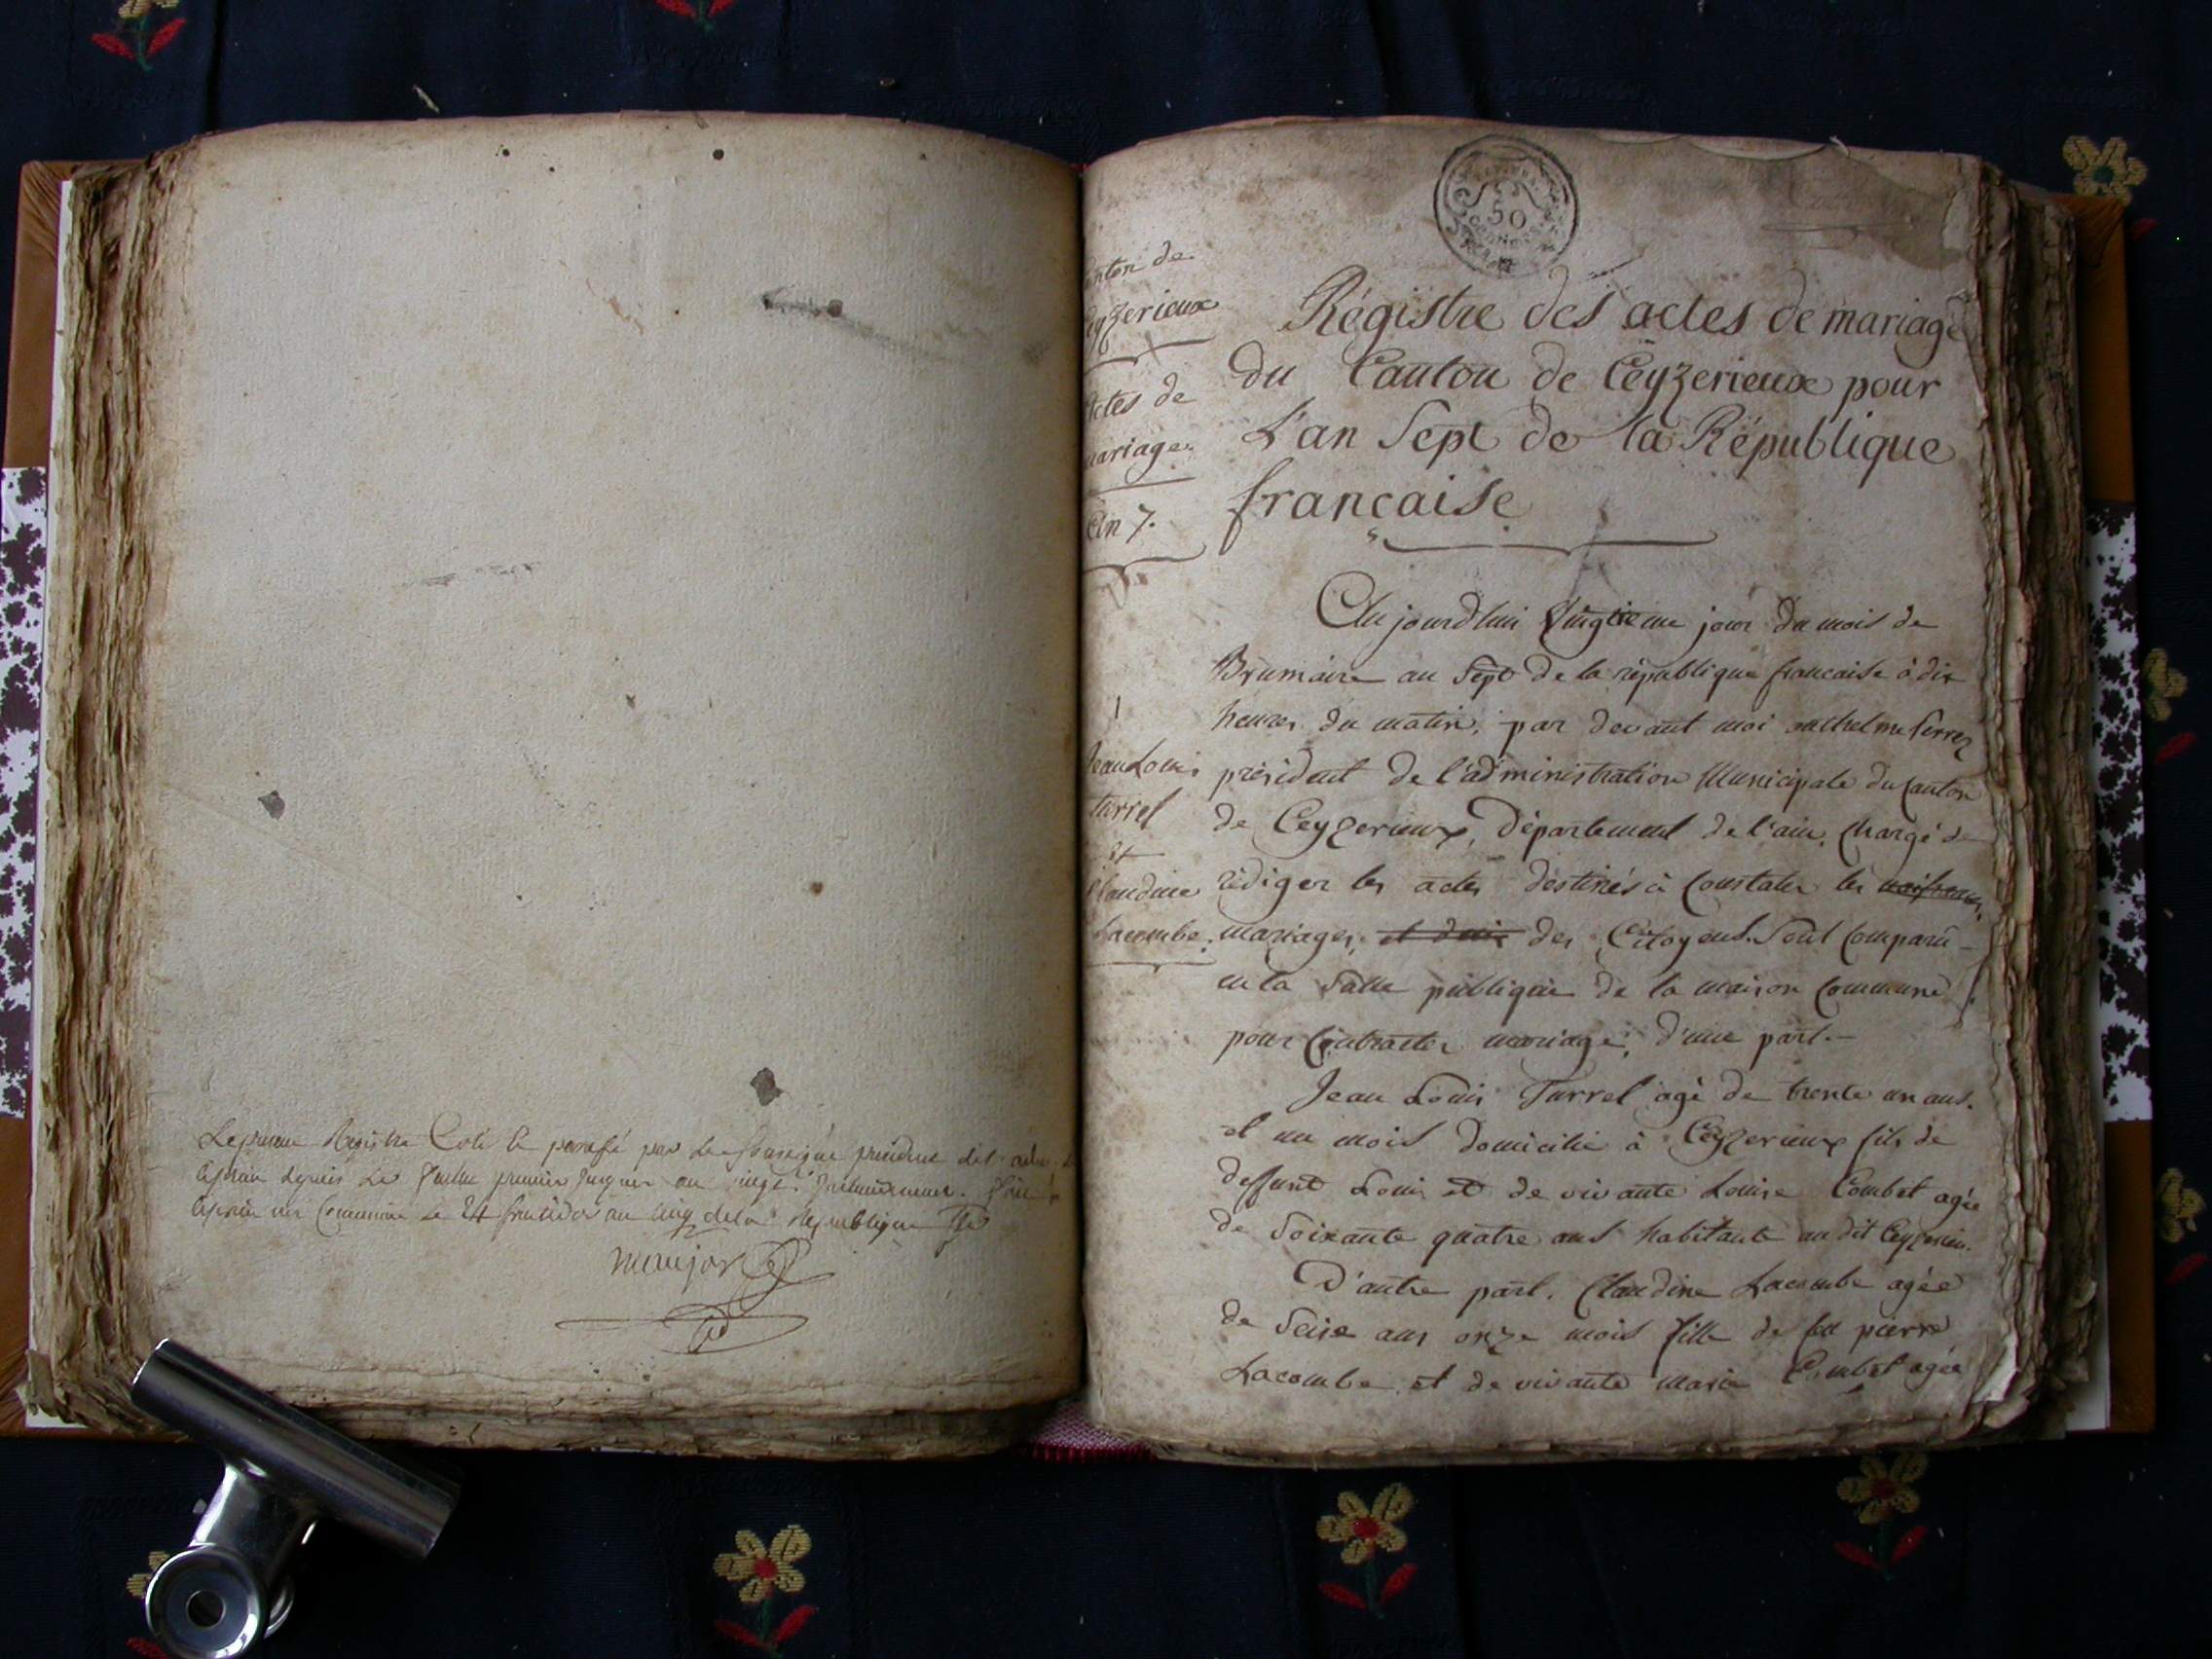 Le présent Registre Coté et parafé par le président
depuis le premier jusques au
Commune le 24 fructidor an cinq de la République
50
canton de
Ceyzerieux
Actes de
mariage.
An 7.
Régistre des actes de mariage
du Canton de Ceyzerieux pour
L'an Sept de la République
francaise
1
Jean Louis
Turrel
et
Claudine
Lacombe.
Aujourdhui Vingtieme jour du mois de
Brumaire an Sept de la république francaise à dix
heures du matin, par devant moi anthelme Serrez
président de l'administration Municipale du Canton
de Ceyzerieux, Département de l'ain, Chargé de
rédiger les actes destinés à Constater les naissances,
mariages, et decès des Citoyens. Sont Comparû
en la Salle publique de la maison Commune
pour Contracter mariage, d'une part.-
Jean Louis Turrel agé de trente un ans.
et un mois domicilié à Ceyzerieux fils de
deffunt Louis et de vivante Louise Combet agée
de Soixante quatre ans habitante au dit Ceyzerieu.
D'autre part. Claudine Lacombe agée
de Seise ans onze mois fille de feu pierre
Lacombe et de vivante Marie Combet agée